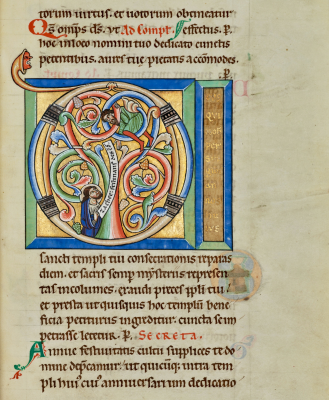 torum uirtus. et uotorum obtineatur
Q̄s om̄ps ds. ut Ad Compl. effectus. P.
hoc in loco nomini tuo dedicato cunctis
petentibus. aures tue pietatis accōmodes.
P.
QUI
sancti templi tui consecrationis reparas
diem. et sacris semp̄ mysteriis represen
tas incolumes. exaudi preces ppli tui. et
et presta ut quisquis hoc templū bene
ficia petiturus ingreditur. cuncta se im
petrasse letetur. P. SECRETA.
Annue festiuitatis cultu supplices te do
mine dep̄camur. ut quicūq; intra tem
pli hui' cui' anniuersarium dedicatio